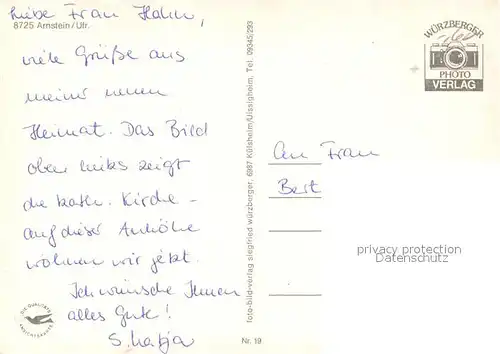 Liebe Frau Hahn,
8725 Arnstein/Ufr.
viele Grüße aus
meiner neuen
Heimat. Das Bild
oben links zeigt
die kath. Kirche -
auf dieser Anhöhe
wohnen wir jetzt.
Ich wünsche Ihnen
alles Gute!
S. Katja
DIE QUALITÄTS
ANSICHTSKARTE
foto-bild-verlag siegfried würzberger, 6987 Külsheim/Uissigheim, Tel. 09345/293
Nr. 19
WÜRZBERGER
PHOTO
VERLAG
An Frau
Bert
privacy protection
Datenschutz